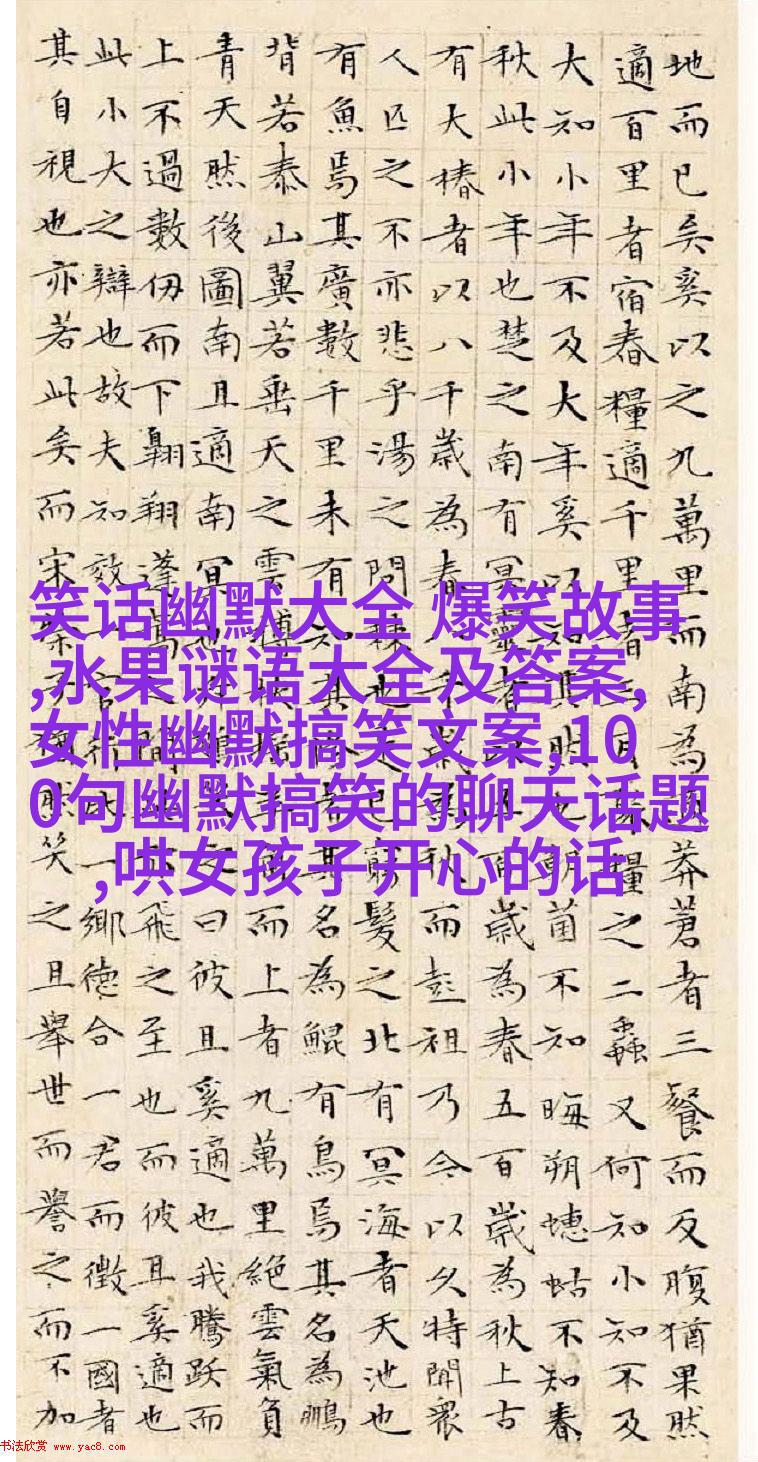 地而已矣奚以之九萬里而南為適莽蒼者三餐而反腹猶果然
適百里者宿舂糧適千里者三月聚糧之二蟲又何知小知不及
大知小年不及大年奚以知其然也朝菌不知晦朔蟪蛄不知春
秋此小年也楚之南有冥靈者以五百歲為春五百歲為秋上古
有大椿者以八千歲為春八千歲為秋而彭祖乃今以久特聞衆
人匹之不亦悲乎湯之問棘也是已窮髮之北有冥海者天池也
有魚焉其廣數千里未有知其脩者其名為鯤有鳥焉其名為鵬
背若泰山翼若垂天之雲摶扶搖羊角而上者九萬里絕雲氣負
青天然後圖南且適南冥也斥鴳笑之曰彼且奚適也我騰躍而
上不過數仞而下翱翔蓬蒿之間此亦飛之至也而彼且奚適也
此小大之辯也故夫知效一官行比一鄉德合一君而徵一國者
其自視也亦若此矣而宋榮子猶然笑之且舉世而譽之而不加
笑话幽默大全 爆笑故事
,水果谜语大全及答案,
女性幽默搞笑文案,10
0句幽默搞笑的聊天话题
,哄女孩子开心的话
书法欣赏 www.yac8.com